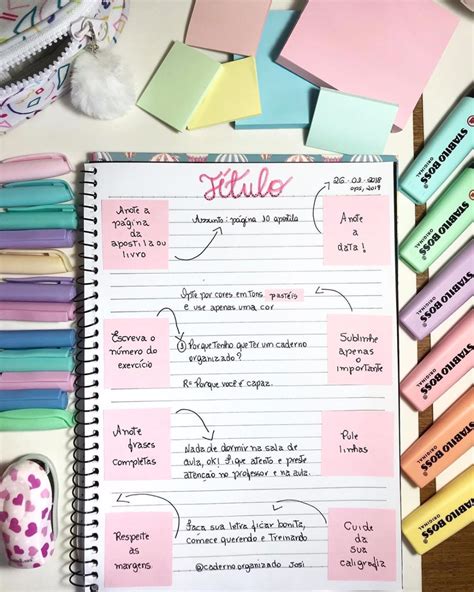 Título
26.01.2018
ops, 2019
Anote a
página
da
apostila ou
livro
Assunto: página 10 apostila
Anote
a
data!
Opte por cores em tons pastéis
e use apenas uma cor
Escreva o
número do
exercício
1 Porque tenho que ter um caderno
organizado?
R= Porque você é capaz.
Sublinhe
apenas
o
importante
Anote
frases
completas
Nada de dormir na sala de
aula, ok! Fique atento e preste
atenção no professor e na aula.
Pule
linhas
Respeite
as
margens
Faça sua letra ficar bonita,
comece querendo e treinando
@cadernoorganizado Josi
Cuide
da
sua
caligrafia
STABILO BOSS
ORIGINAL
STABILO BOSS
ORIGINAL
STABILO BOSS
ORIGINAL
STABILO BOSS
ORIGINAL
STABILO BOSS
ORIGINAL
STABILO BOSS
ORIGINAL